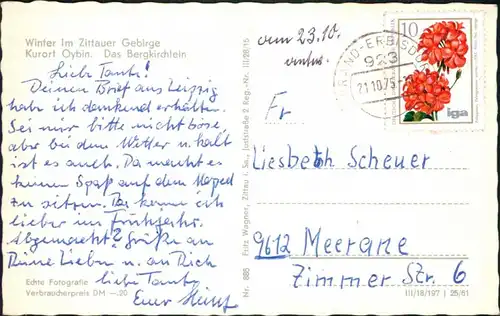 Winter im Zittauer Gebirge
Kurort Oybin. Das Bergkirchlein
Liebe Tante!
Deinen Brief aus Leipzig
habe ich dankend erhalten.
Sei mir bitte nicht böse,
aber bei dem Wetter u. kalt
ist es auch. Da macht es
keinen Spaß auf dem Moped
zu sitzen. Da komm ich
lieber im Frühjahr.
Abgemacht? Grüße an
Deine Lieben u. an Dich
liebe Tante
Euer Heinz
Echte Fotografie
Verbraucherpreis DM —.20
Nr. 885 Fritz Wagner, Zittau i. Sa., Juststraße 2 Reg.-Nr. III/28/15
vom 23.10.
BRAND-ERBISDORF
923
21.10.75
10
iga
Fr
Liesbeth Scheuer
9612 Meerane
Zimmer Str. 6
III/18/197 | 25/61